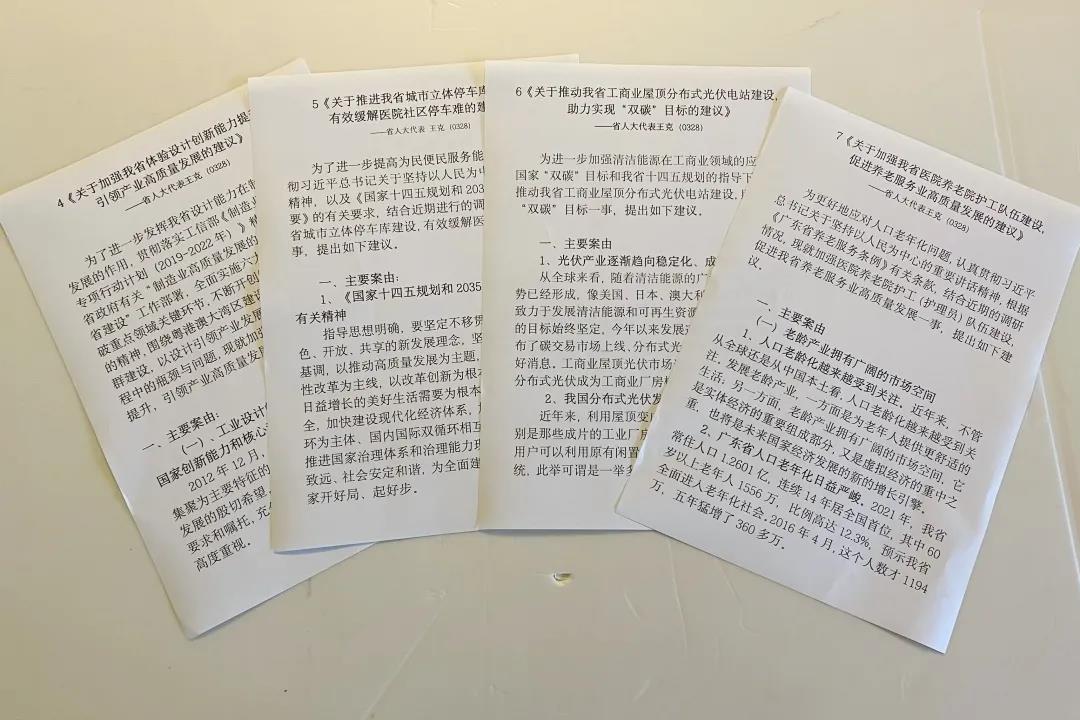 4《关于加强我省体验设计创新能力提
引领产业高质量发展的建议》
——省人大代表王克（0328）
为了进一步发挥我省设计能力在制
发展的作用，贯彻落实工信部《制造业
专项行动计划（2019-2022 年）》
省政府有关“制造业高质量发展的
省建设”工作部署，全面实施六大
破重点领域关键环节，不断开创
的精神，围绕粤港澳大湾区建设
群建设，以设计引领产业发展
程中的瓶颈与问题，现就加强
提升，引领产业高质量发
一、主要案由：
（一）、工业设计
国家创新能力和核心
2012 年 12 月，
集聚为主要特征的
发展的殷切希望，
要求和嘱托，充
高度重视。
5《关于推进我省城市立体停车库
有效缓解医院社区停车难的建
——省人大代表 王克（0328）
为了进一步提高为民便民服务能
彻习近平总书记关于坚持以人民为中
精神，以及《国家十四五规划和 203
要》的有关要求，结合近期进行的调
省城市立体停车库建设，有效缓解医
事，提出如下建议。
一、主要案由：
1、《国家十四五规划和 2035
有关精神
指导思想明确，要坚定不移贯
色、开放、共享的新发展理念，坚
基调，以推动高质量发展为主题，
性改革为主线，以改革创新为根本
日益增长的美好生活需要为根本
全，加快建设现代化经济体系，加
环为主体、国内国际双循环相互
推进国家治理体系和治理能力现
致远、社会安定和谐，为全面建
家开好局、起好步。
6《关于推动我省工商业屋顶分布式光伏电站建设，
助力实现“双碳”目标的建议》
——省人大代表王克（0328）
为进一步加强清洁能源在工商业领域的应
国家“双碳”目标和我省十四五规划的指导下
推动我省工商业屋顶分布式光伏电站建设，
“双碳”目标一事，提出如下建议。
一、主要案由
1、光伏产业逐渐趋向稳定化、成
从全球来看，随着清洁能源的广
势已经形成，像美国、日本、澳大利
致力于发展清洁能源和可再生资源
的目标始终坚定，今年以来发展
布了碳交易市场上线、分布式光伏
好消息。工商业屋顶光伏市场
分布式光伏成为工商业厂房
2、我国分布式光伏发
近年来，利用屋顶变
别是那些成片的工业厂房
用户可以利用原有闲置
统，此举可谓是一举多
7《关于加强我省医院养老院护工队伍建设，
促进养老服务业高质量发展的建议》
——省人大代表王克（0328）
为更好地应对人口老年化问题，认真贯彻习近平
总书记关于坚持以人民为中心的重要讲话精神，根据
《广东省养老服务条例》有关条款，结合近期的调研
情况，现就加强医院养老院护工（护理员）队伍建设，
促进我省养老服务业高质量发展一事，提出如下建
议。
一、主要案由
（一）老龄产业拥有广阔的市场空间
1、人口老龄化越来越受到关注。近年来，不管
从全球还是从中国本土看，人口老龄化越来越受到关
注。发展老龄产业，一方面是为老年人提供更舒适的
生活；另一方面，老龄产业拥有广阔的市场空间，它
是实体经济的重要组成部分，又是虚拟经济的重中之
重，也将是未来国家经济发展的新的增长引擎。
2、广东省人口老年化日益严峻。2021 年，我省
常住人口 1.2601 亿，连续 14 年居全国首位，其中 60
岁以上老年人 1556 万，比例高达 12.3%，预示我省
全面进入老年化社会。2016 年 4 月，这个人数才 1194
万，五年猛增了 360 多万。